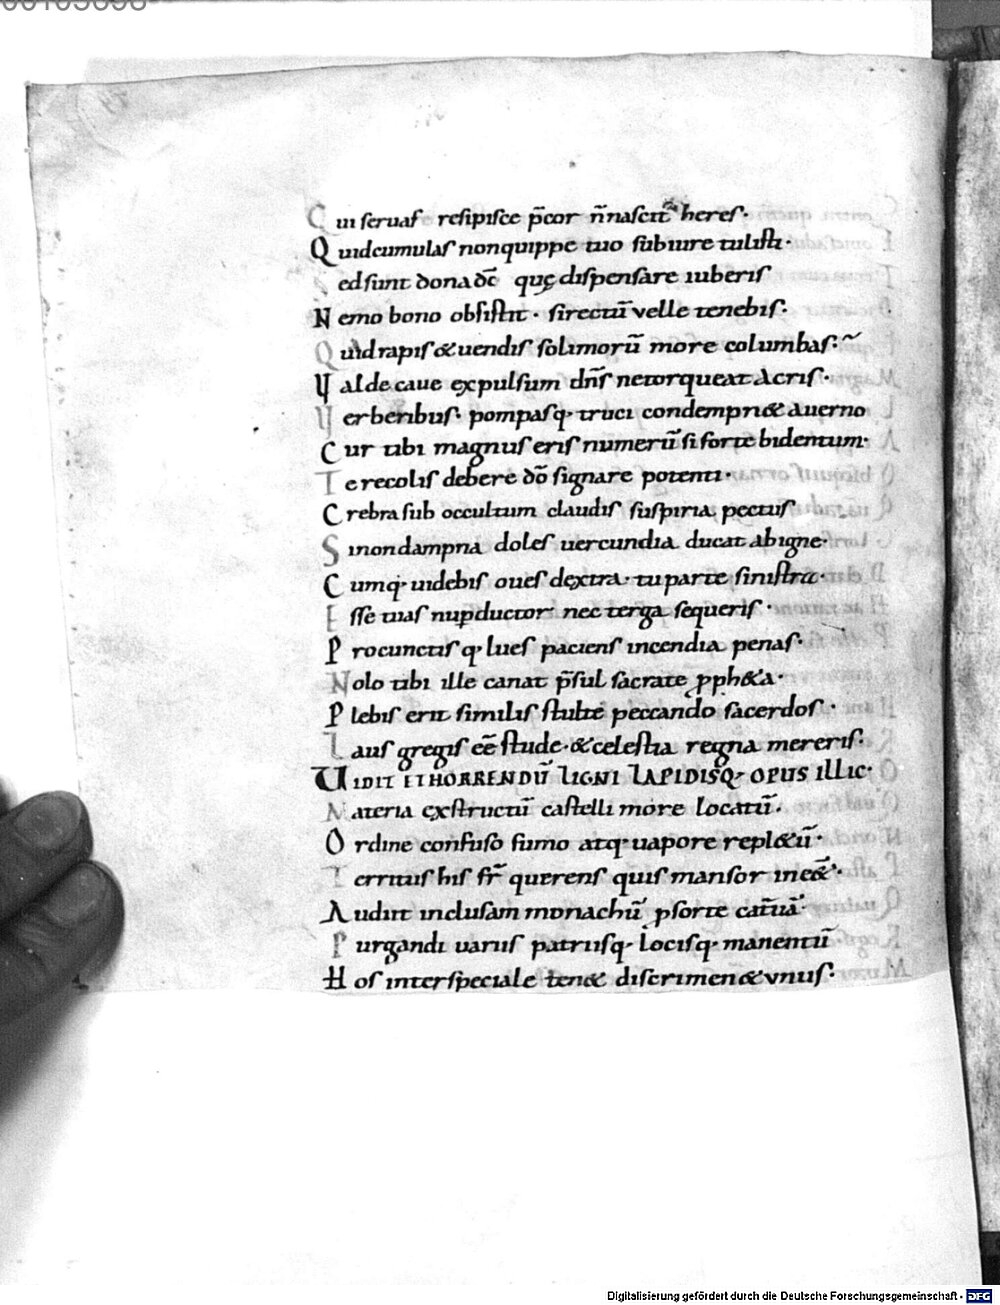 Qui seruas resipisce p̄cor n̄ nascit᷑ heres·
Quid cumulas non quippe tuo sub iure tulisti·
Sed sunt dona dō quę dispensare iuberis
Nemo bono obsistit· si rectū velle tenebis·
Quid rapis & uendis solimorū more columbas·
Valde caue expulsum dn̄s ne torqueat acris·
Verberibus· pompasq· truci condempn& auerno
Cur tibi magnus eris numerū si forte bidentum·
Te recolis debere dō signare potenti·
Crebra sub occultum claudis suspiria pectus
Si non dampna doles uercundia ducat ab igne·
Cumq· uidebis oues dextra· tu parte sinistra·
Esse tuas nup̄ ductor nec terga sequeris·
Pro cunctis q· lues paciens incendia penas·
Nolo tibi ille canat p̄sul sacrate ppħ&a·
Plebis erit similis stulte peccando sacerdos·
Laus gregis eē stude· & celestia regna mereris·
VIDIT ET HORRENDŪ LIGNI LAPIDISQ· OPUS ILLIC·
Materia exstructū castelli more locatū·
Ordine confuso fumo atq· uapore repl&ū·
Territus his fr̄ querens quis mansor in e&̄·
Audiit inclusam monachū p sorte cat̄uā·
Purgandi uariis patriisq· locisq· manentū
Hos inter speciale ten& discrimen & vnus·
Digitalisierung gefördert durch die Deutsche Forschungsgemeinschaft - DFG